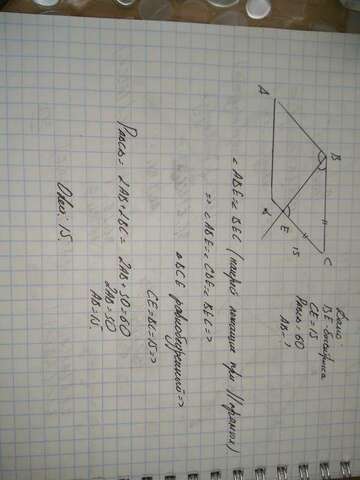 Дано:
BE - биссектриса
CE = 15
Pabcd = 60
AB - ?
A
B
C
E
d
15
∠ABE = ∠BEC (накрест лежащие при || прямых)
=> ∠ABE = ∠CBE = ∠BEC =>
ΔBCE равнобедренный =>
CE = BC = 15 =>
Pabcd = 2AB + 2BC = 2AB + 30 = 60
2AB = 30
AB = 15
Ответ: 15.